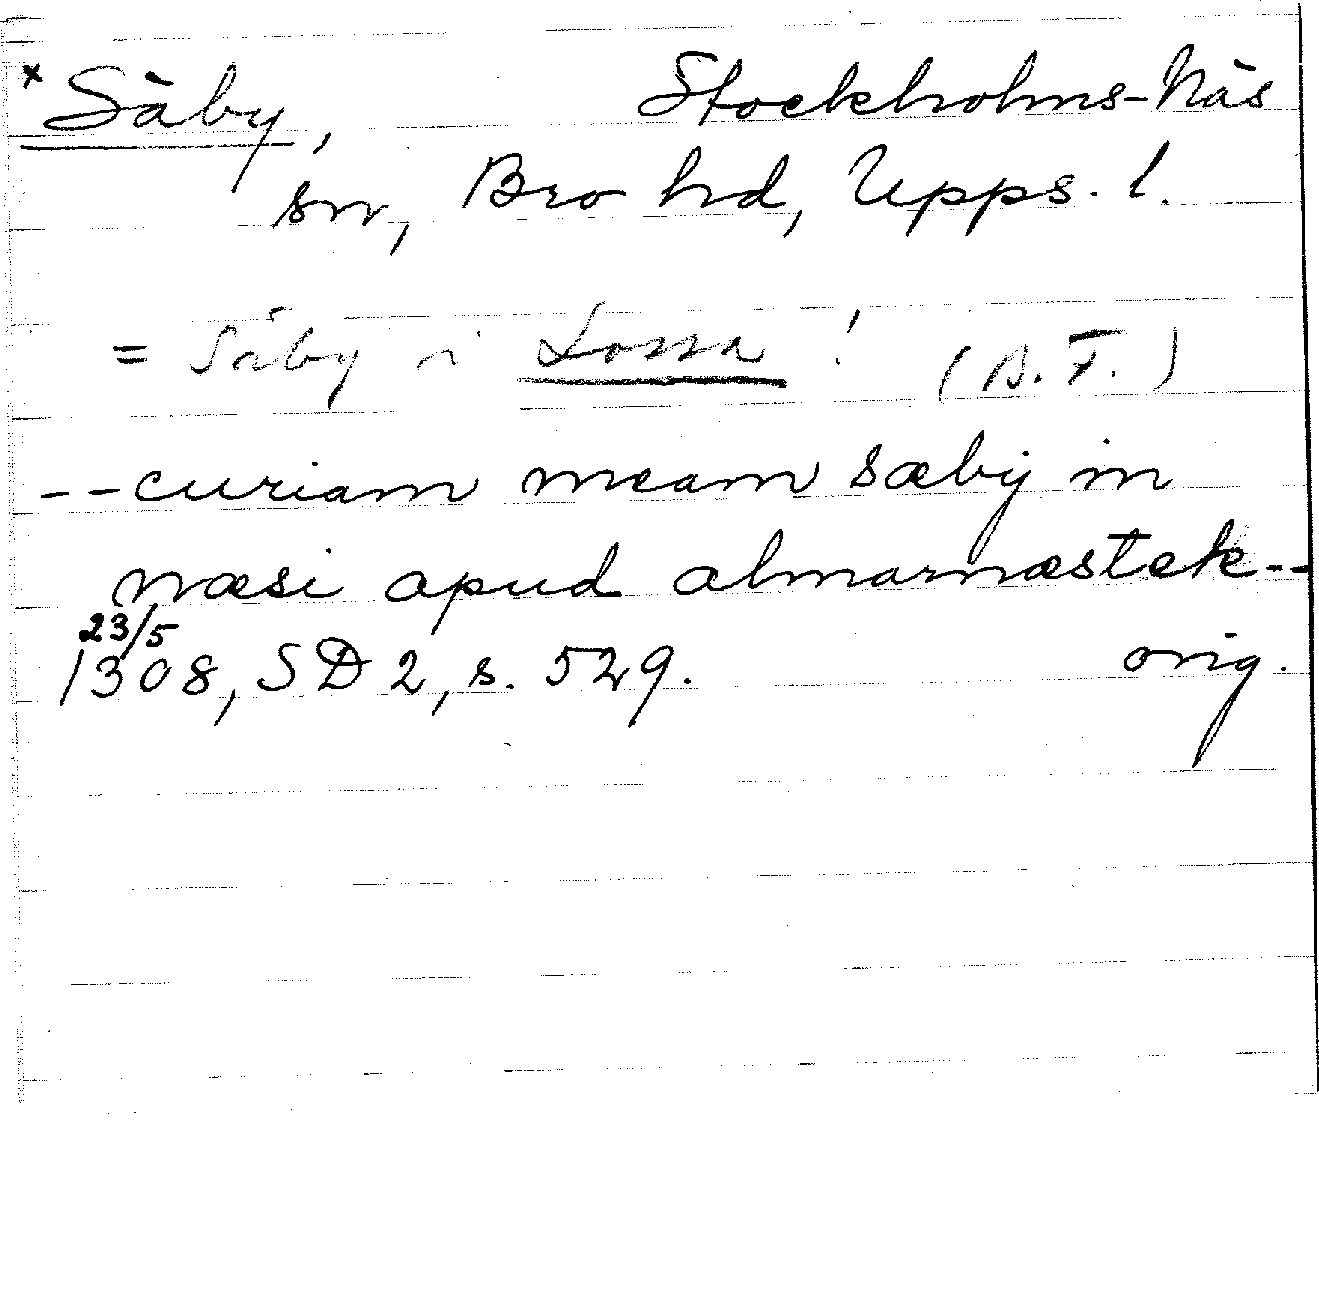 × Säby, Stockholms-Näs
sn, Bro hd, Upps. l.
= Säby i Lossa! (B.F.)
--curiam meam sæbÿ in
næsi apud almarnæstæk--
23/5
1308, SD 2, s. 529. orig.